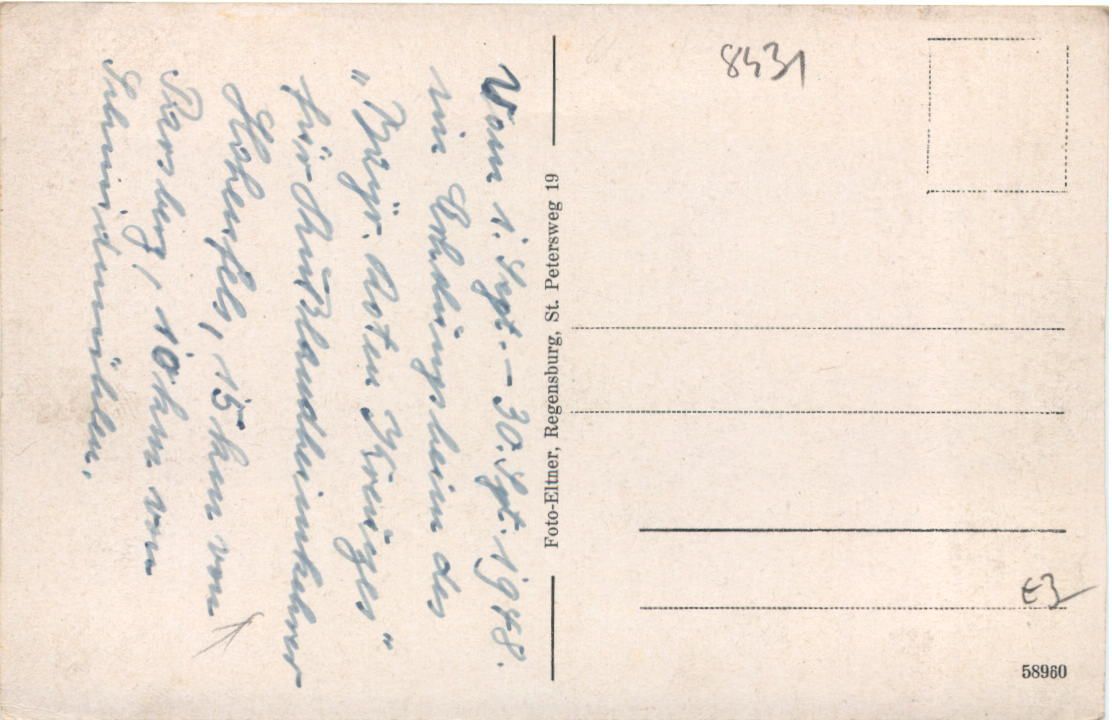 Vom 1. Sept. – 30. Sept. 1948.
im Erholungsheim des
"Bayr. Roten Kreuzes"
für Rußlandheimkehrer
Hohenfels, 15 km von
Parsberg, 10 km von
Schmidmühlen.
Foto-Eltner, Regensburg, St. Petersweg 19
8431
E3
58960